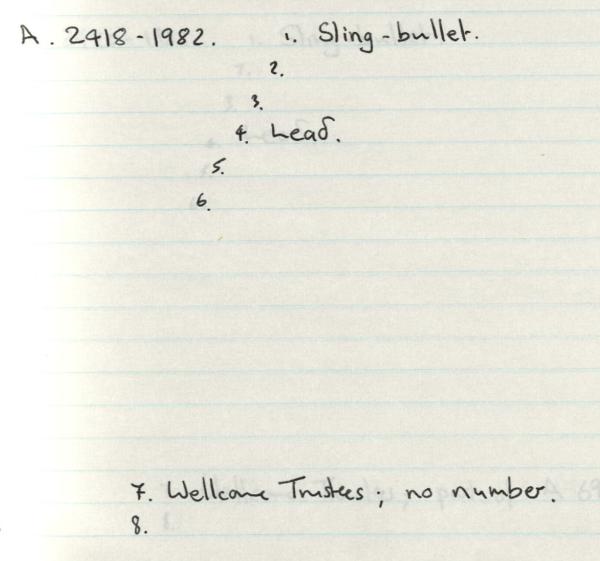 A. 2418-1982. 1. Sling-bullet.
2.
3.
4. Lead.
5.
6.
7. Wellcome Trustees; no number.
8.